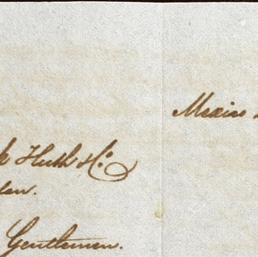 Mexico
k Huth & Co.
don.
Gentlemen.